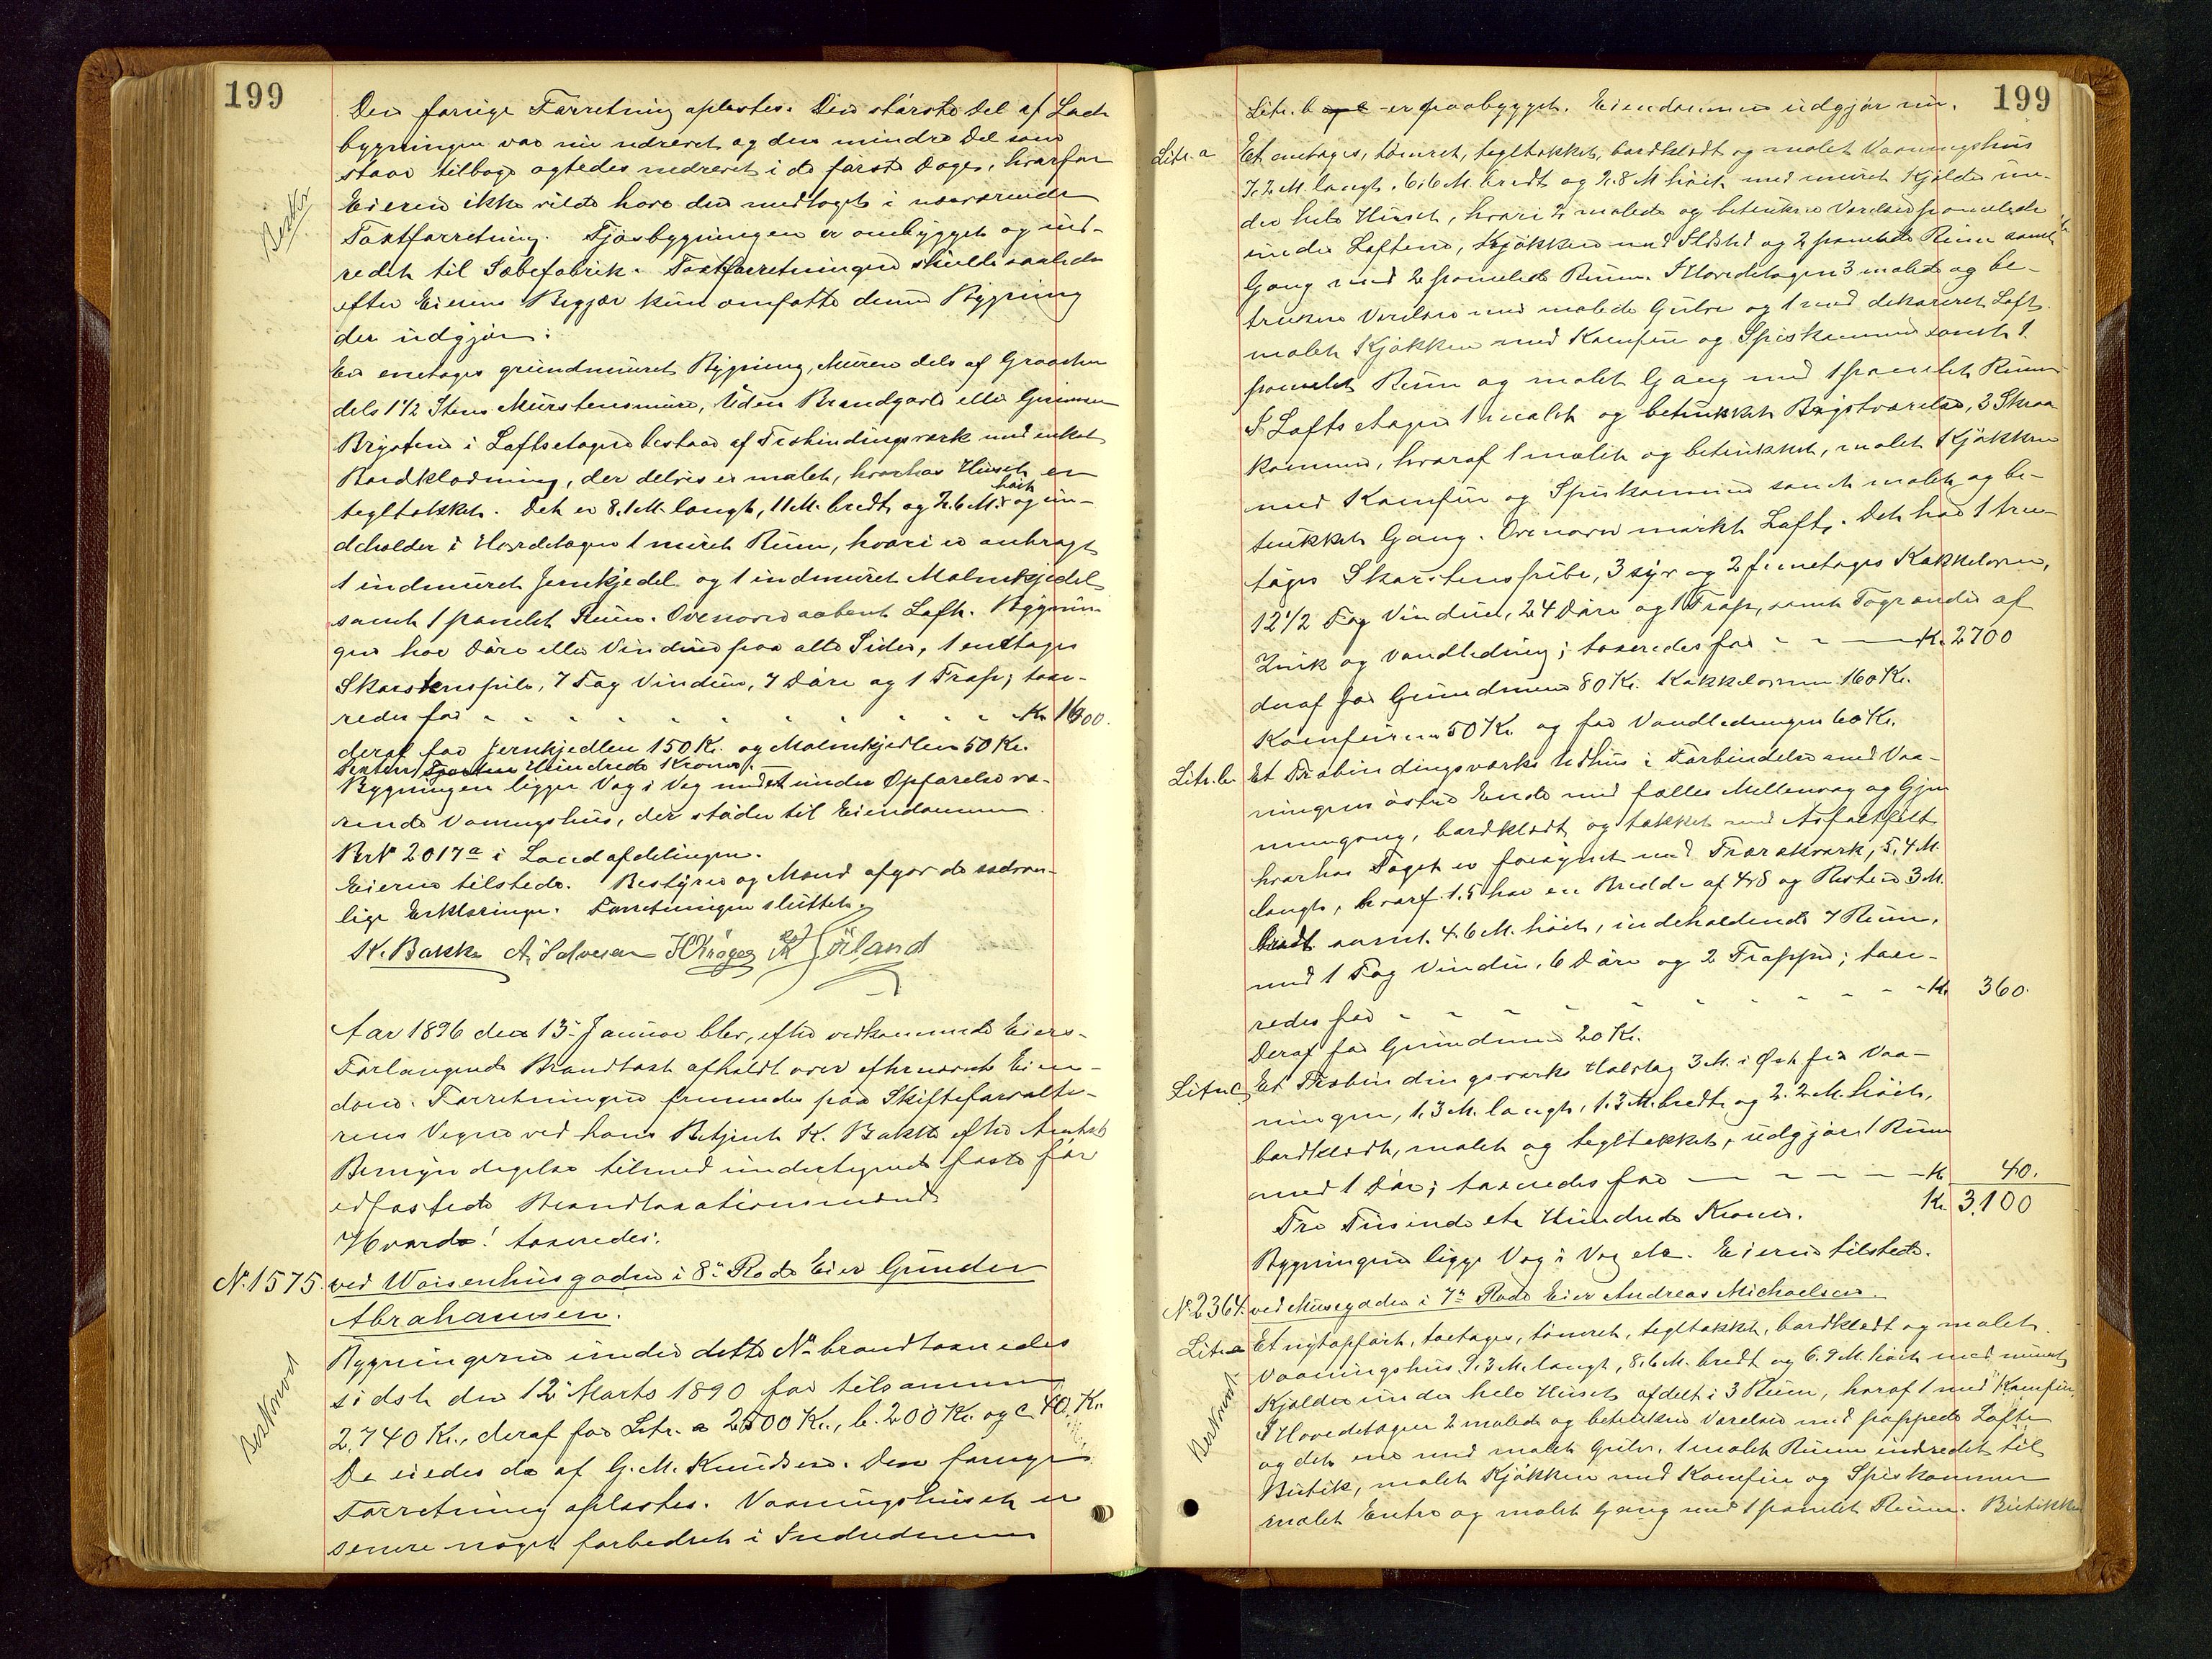 199
Den forrige Forretning oplæstes. Den største Del af Lade
bygningen var nu nedrevet og den mindre Del som
staar tilbage agtedes nedrevet i de første Dage, hvorfor
Eieren ikke vilde have den medtaget i nærværende
Taxtforretning. Fjøsbygningen er ombygget og ind-
redet til Sæbefabrik. Taxtforretningen skulde saaledes
efter Eierens Begjær kun omfatte denne Bygning
der udgjør:
En enetages grundmuret Bygning, Muren dels af Graasten
dels 1 1/2 Stens Murstensmure, Uden Brandgavle eller Gesimser
Brystene i Loftsetagen bestaar af Træbindingsværk med enkel
Bordklædning, der delvis er malet, hvorhos Huset er
tegltækket. Det er 8.1 M. langt, 11 M. bredt og 2.6 M. høit og in-
deholder i Hovedetagen 1 muret Rum, hvori er anbragt
1 indmuret Jernkjedel og 1 indmuret Malmkjedel
samt 1 panelet Rum. Ovenover aabent Loft. Bygnin-
gen har Døre eller Vinduer paa alle Sider, 1 enetages
Skorstenspibe, 7 Fag Vinduer, 7 Døre og 1 Trap; taxe-
redes for - - - - - - - - - - Kr. 1600.
deraf for Jernkjedlen 150 Kr. og Malmkjedlen 50 Kr.
Sexten Hundrede Kroner.
Bygningen ligger Væg i Væg med et under Opførelse væ-
rende Vaaningshus, der støder til Eiendommen
Br. N. 2017a i Landafdelingen.
Eieren tilstede. Bestyrer og Mænd afgav de sædvan-
lige Erklæringer. Forretningen sluttet.
K. Bakke A. Salvesen H Krøger
Aar 1896 den 13. Januar blev, efter vedkommende Eiers
Forlangende Brandtaxt afholdt over efternævnte Eien-
domme. Forretningen fremmedes paa Skifteforvalte-
rens Vegne ved hans Betjent K. Bakke efter Amtets
Bemyndigelse tilmed undertegnede faste før
edfæstede Brandtaxationsmænd
Hvorda! taxeredes:
N. 1575. ved Waisenhusgaden i 8. Rode Eier Gunder
Abrahamsen.
Bygningerne under dette No brandtaxeredes
sidst den 12 Marts 1890 for tilsammen
2,740 Kr., deraf for Litr. a 2500 Kr., b. 200 Kr. og c 40 Kr.
De eiedes da af G. M. Knudsen. Den forrige
Forretning oplæstes. Vaaningshuset er
senere noget forbedret i Indredningen
199
Litr. b er paabygget. Eiendommen udgjør nu.
Litr. a Et enetages, tømret, tegltækket, bordklædt og malet Vaaningshus
7.2 M. langt, 6.6 M. bredt og 2.8 M høit med muret Kjælder un-
der hele Huset, hvori 2 malede og betrukne Værelser panelede
under Loftene, Kjøkken med Ildsted og 2 panelede Rum samt
Gang med 2 panelede Rum. I Hovedetagen 3 malede og be-
trukne Værelser med malede Gulve og 1 med dekoreret Loft
malet Kjøkken med Komfur og Spiskammer samt 1
panelet Rum og malet Gang med 1 panelet Rum
I Loftsetagen 1 malet og betrukket Brystværelse, 3 Skraa
kammere, hvoraf 1 malet og betrukket, malet Kjøkken
med Komfur og Spiskammer samt malet og be-
trukket Gang. Ovenover mørkt Loft. Det har 1 tre-
tages Skorstenspibe, 3 syv og 2 femetages Kakkelovne,
12 1/2 Fag Vinduer, 24 Døre og 1 Trap, samt Tagrender af
Zink og Vandledning; taxeredes for - - - Kr. 2700
deraf for Grundmuren 80 Kr. Kakkelovnene 160 Kr.
Komfurene 50 Kr. og for Vandledningen 60 Kr.
Litr. b Et Træbindingsværks Udhus i Forbindelse med Vaa-
ningens østre Ende med fælles Mellemvæg og Gjen-
nemgang, bordklædt og tækket med Asfaltfilt
hvorhos Taget er forsynet med Sprækværk, 5.4 M.
langt, hvoraf 1.5 har en Bredde af 4.8 og Resten 3 M.
bredt samt 4.6 M. høit, indeholdende 7 Rum,
med 1 Fag Vindu, 6 Døre og 2 Trapper; taxe-
redes for - - - - - - - - Kr. 360.
Deraf for Grundmuren 20 Kr.
Litr. c Et Træbindingsværks Halvtag 3 M. i Øst fra Vaa-
ningen, 1.3 M. langt, 1.3 M. bredt og 2.2 M. høit,
bordklædt, malet og tegltækket, udgjør 1 Rum
med 1 Dør; taxeredes for - - - - Kr. 40.
Tre Tusinde et Hundrede Kroner. Kr. 3,100
Bygningerne ligge Væg i Væg etc. Eieren tilstede.
N. 2364. ved Musegaden i 7. Rode Eier Andreas Michaelsen.
Litr. a Et nytopført, toetages, tømret, tegltækket, bordklædt og malet
Vaaningshus 9.3 M. langt, 8.6 M. bredt og 6.9 M. høit med muret
Kjælder under hele Huset afdelt i 3 Rum, hvoraf 1 med Komfur.
I Hovedetagen 2 malede og betrukne Værelser med pappede Lofter
og det ene med malet Gulv, 1 malet Rum indredet til
Butik, malet Kjøkken med Komfur og Spiskammer
malet Entre og malet Gang med 1 panelet Rum. Butikken